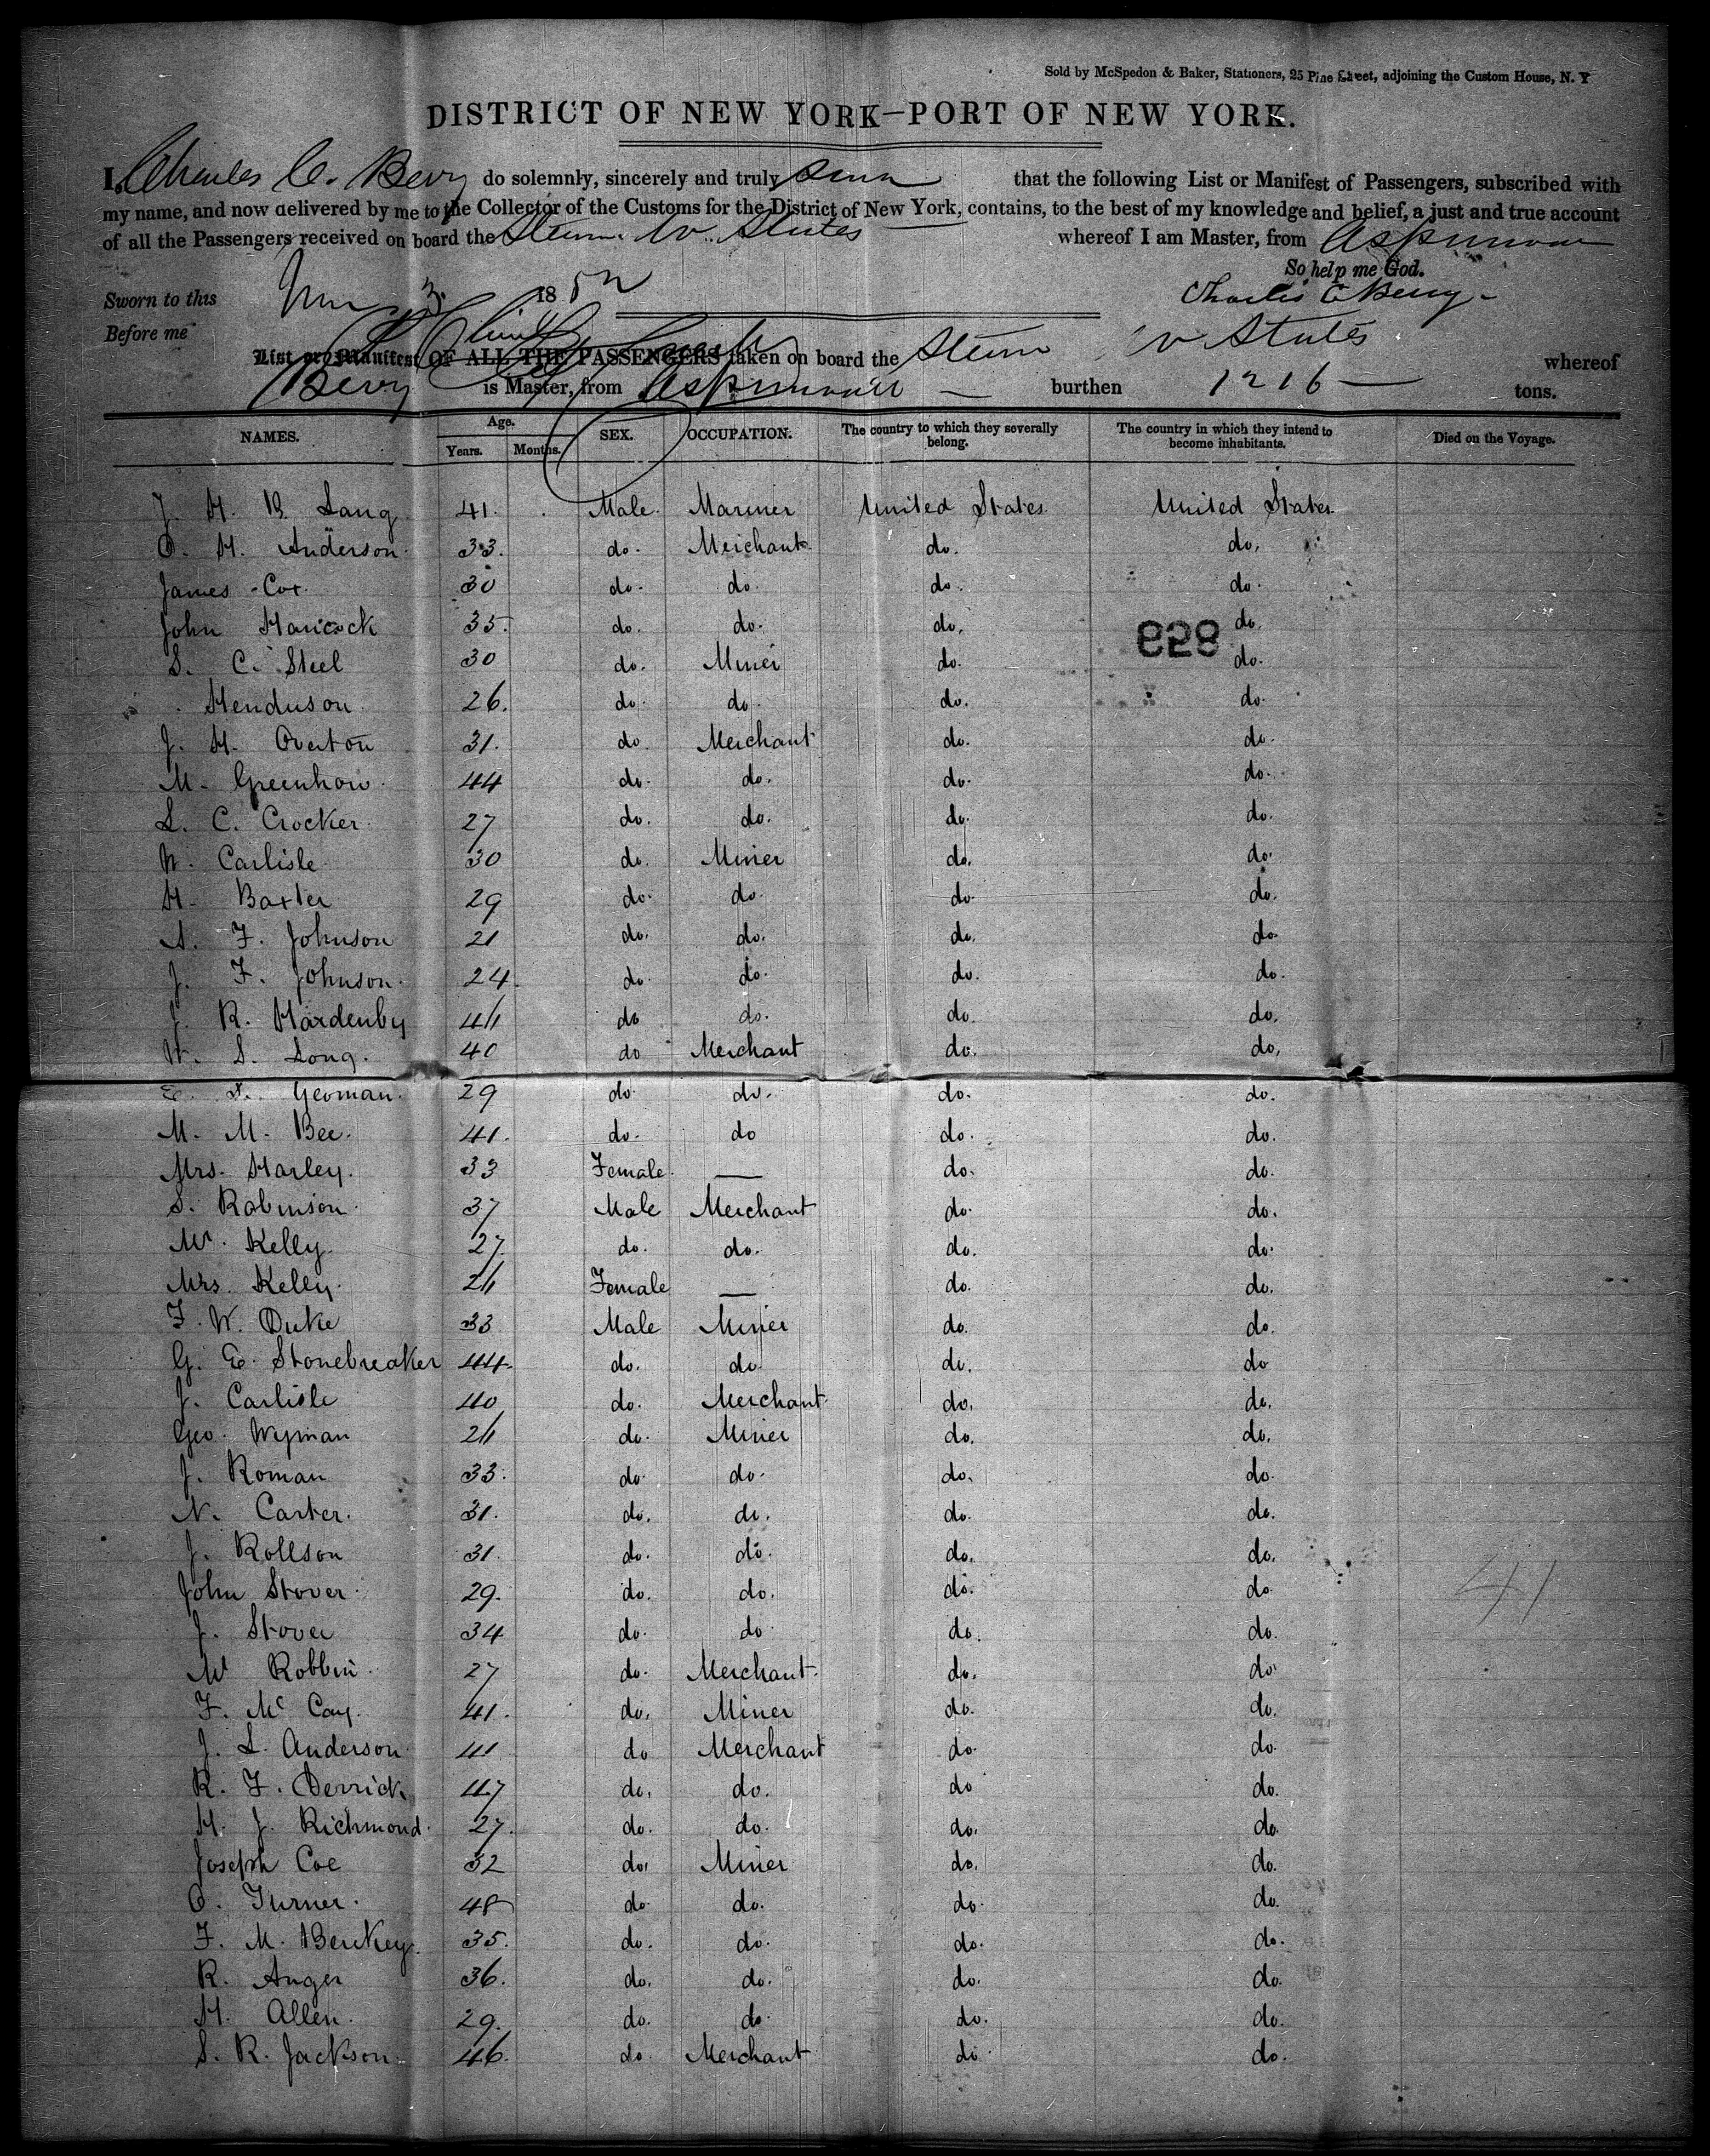 Sold by McSpedon & Baker, Stationers, 25 Pine Street, adjoining the Custom House, N. Y
DISTRICT OF NEW YORK—PORT OF NEW YORK.
I, Charles C. Berry do solemnly, sincerely and truly that the following List or Manifest of Passengers, subscribed with
my name, and now delivered by me to the Collector of the Customs for the District of New York, contains, to the best of my knowledge and belief, a just and true account
of all the Passengers received on board the Steam. U. States whereof I am Master, from Aspinwall
So help me God.
Sworn to this 3. 1852 Charles C Berry
Before me
List or Manifest OF ALL THE PASSENGERS taken on board the Steam U States whereof
Berry is Master, from Aspinwall — burthen 1216 — tons.
NAMES. Age. Years. Months. SEX. OCCUPATION. The country to which they severally belong. The country in which they intend to become inhabitants. Died on the Voyage.
J. H. B. Lang 41. Male Mariner United States. United States.
O. H. Anderson. 33. do. Merchant. do. do.
James Cox. 30 do. do. do. do.
John Hancock 35. do. do. do. do.
859
S. C. Steel 30 do. Miner do. do.
Henderson 26. do. do. do. do.
J. H. Overton 31. do. Merchant do. do.
M. Greenhow. 44 do. do. do. do.
L. C. Crocker. 27 do. do. do. do.
W. Carlisle 30 do. Miner do. do.
H. Baxter 29 do. do. do. do.
A. F. Johnson 21 do. do. do. do.
J. F. Johnson. 24. do. do. do. do.
J. R. Hardenby 41 do do. do. do.
W. S. Long. 40 do Merchant do. do.
E. S. Yeoman. 29 do. do. do. do.
M. M. Bee. 41. do. do do. do.
Mrs. Harley. 33 Female. — do. do.
S. Robinson. 37 Male Merchant do. do.
Mr. Kelly. 27. do. do. do. do.
Mrs. Kelly. 24 Female — do. do.
F. W. Duke 33 Male Miner do. do.
G. E. Stonebreaker 44. do. do. do. do
J. Carlisle 40 do. Merchant. do. do.
Geo. Wyman 24 do. Miner do. do.
J. Roman 33. do. do. do. do.
N. Carter. 31. do. do. do. do.
J. Rollson 31. do. do. do. do.
John Stover. 29. do. do. do. do.
41
J. Stover 34 do. do. do. do.
Mr Robbin. 27 do. Merchant. do. do.
F. Mc Cay. 41. do. Miner do. do.
J. L. Anderson. 41 do Merchant do. do.
R. F. Derrick 47 do. do. do do.
H. J. Richmond. 27. do. do. do. do.
Joseph Coe 32 do. Miner do. do.
O. Turner. 48 do. do. do. do.
F. M. Berkey. 35. do. do. do. do.
R. Anger 36. do. do. do. do.
H. Allen. 29. do. do. do. do.
S. R. Jackson. 46. do. Merchant do. do.